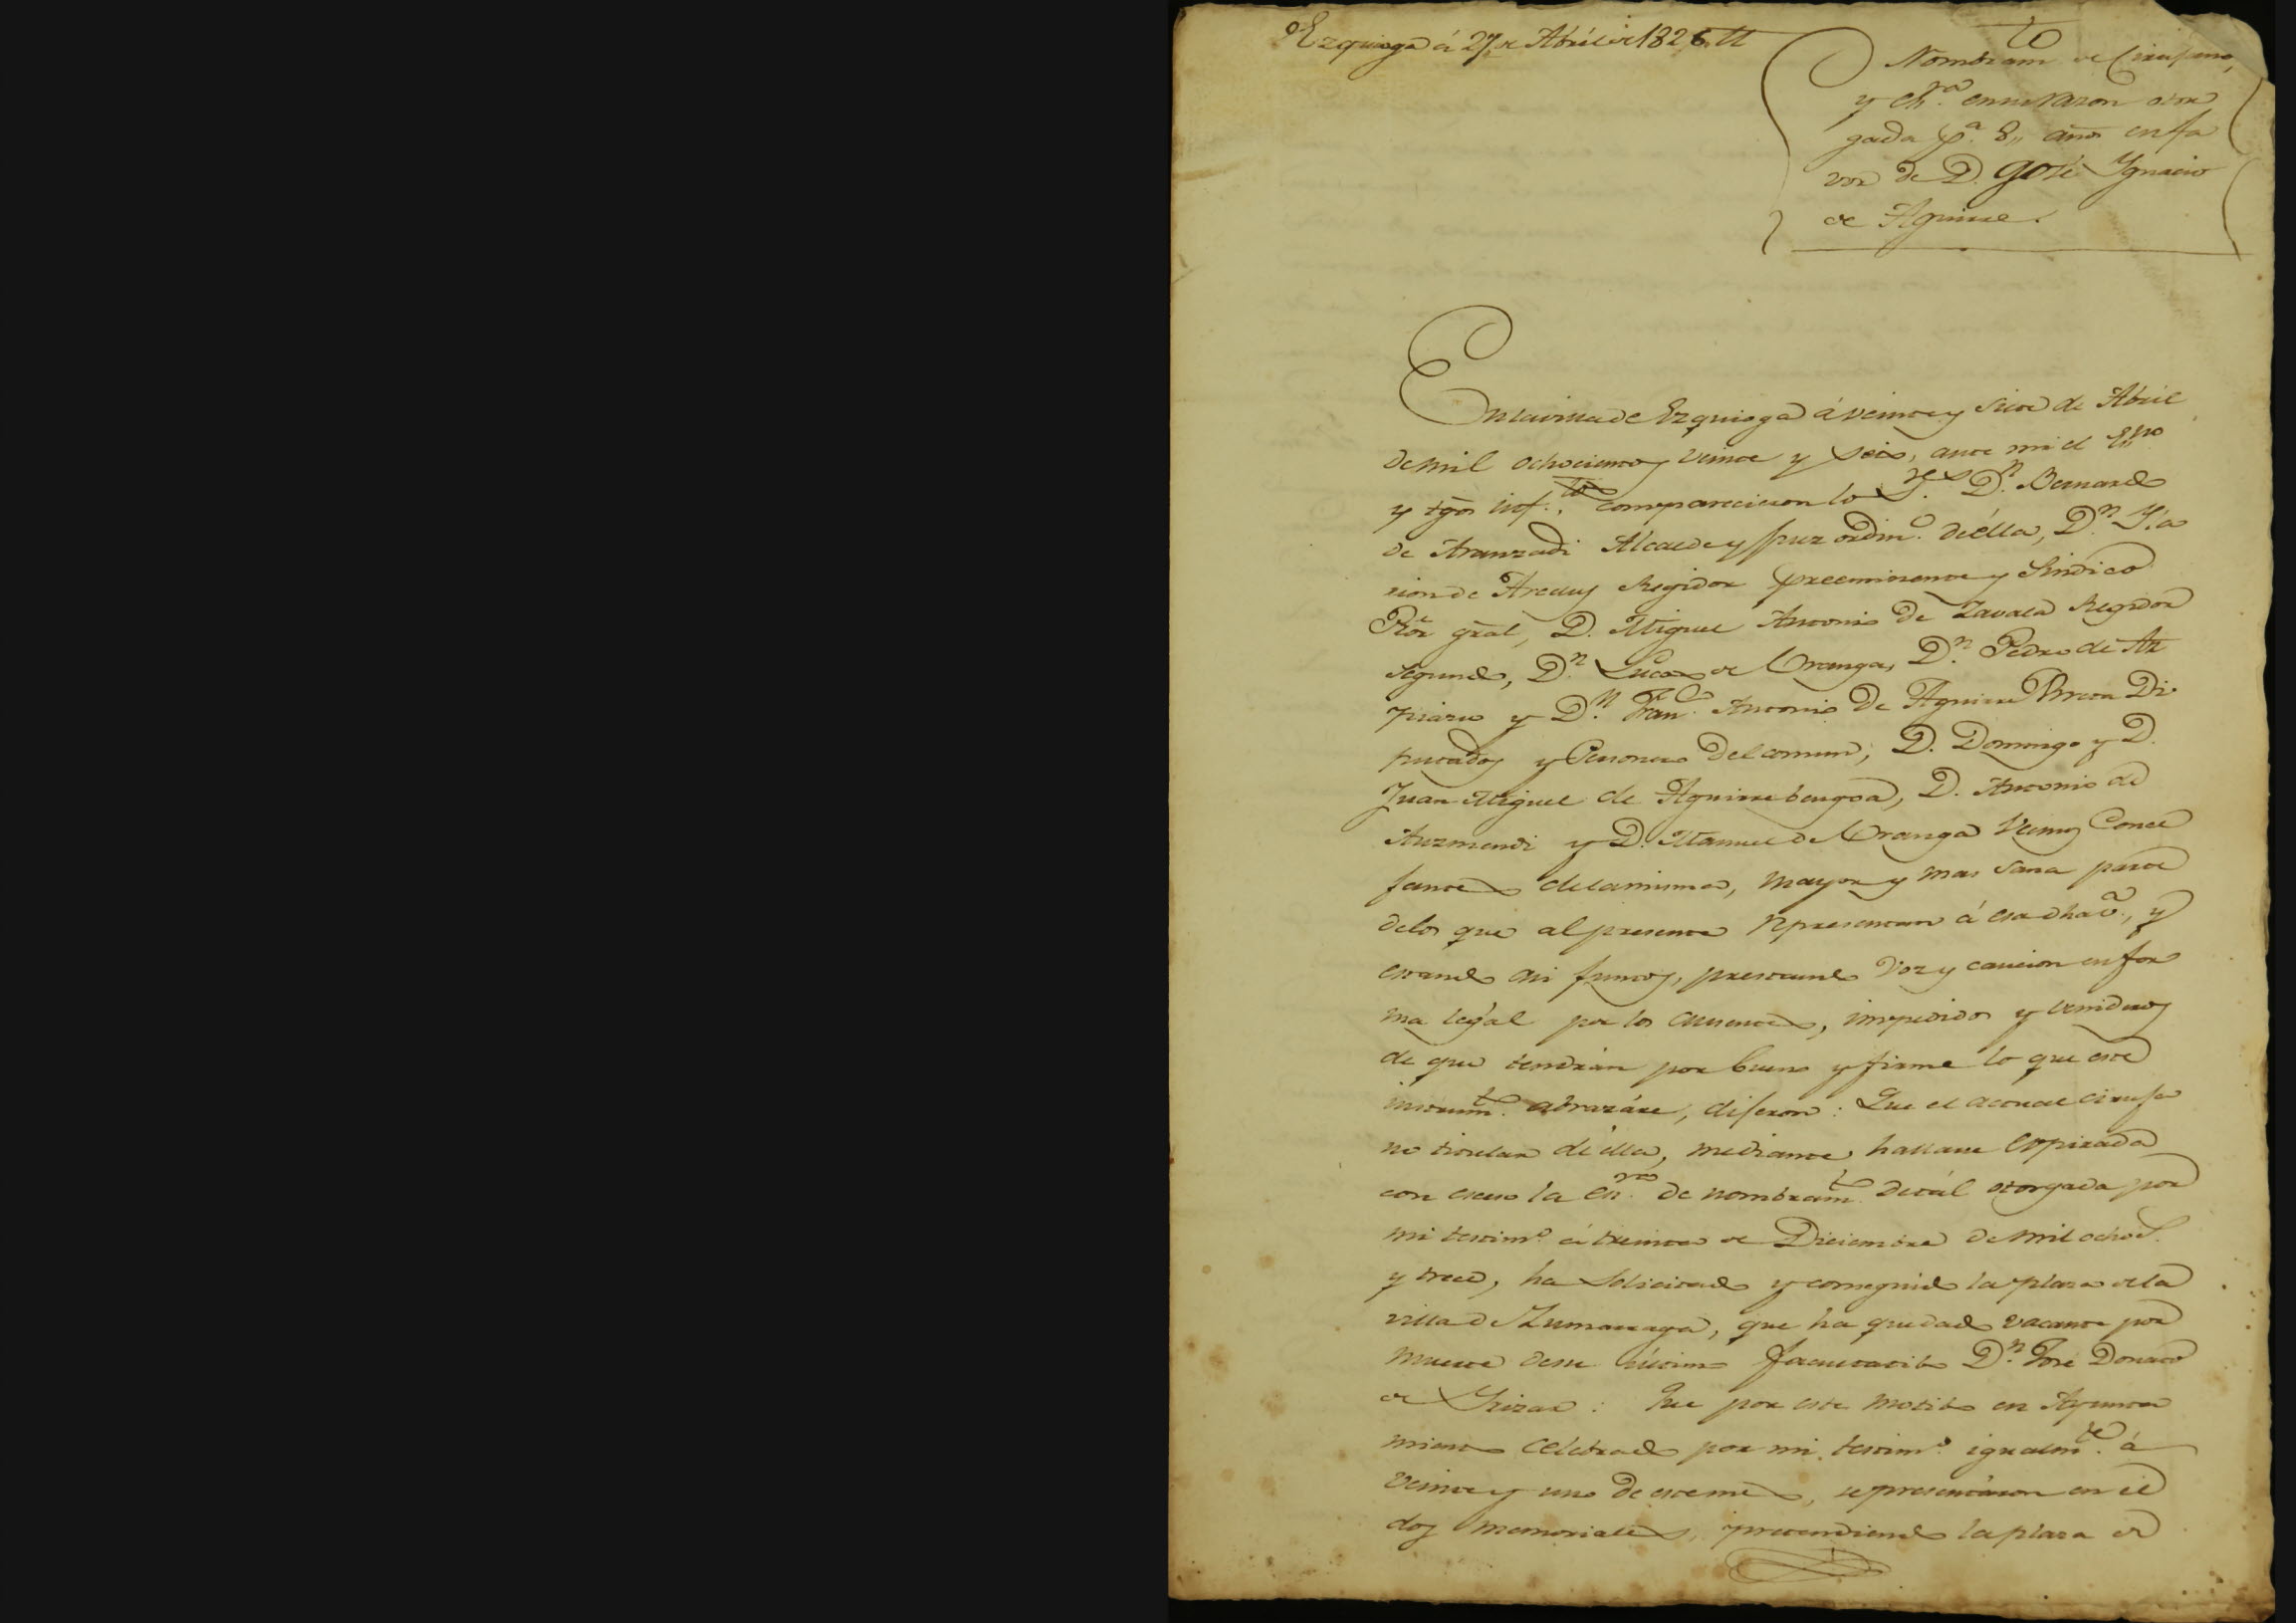 Ezquioga á 27,, de Abril de 1826.
Nombram.to de Cirujano,
y Es.ra en su razon otor
gada p.a 8,, años en fa
vor de D. José Ygnacio
de Aguirre.
En la villa de Ezquioga á veinte y siete de Abril
de mil ochocientos veinte y seis, ante mi el Esno
y tgos inf.tos comparecieron los S.res D.n Bernardo
de Aranzadi Alcalde y Juez ordin.o de élla, D.n Yla
rion de Areluy Regidor preeminente y Sindico
Pror gral, D. Miguel Antonio de Zavala Regidor
segundo, D.n Lucas de Oranga, D.n Pedro de Az
piazu y D.n Fran.co Antonio de Aguirre Di
putados y Personero del comun, D. Domingo y D.
Juan Miguel de Aguirrebengoa, D. Antonio de
Auzmendi y D. Manuel de Oranga Vecinos Conce
jantes de la misma, mayor y mas sana parte
de los que al presente representan á esa dha v.a, y
estando asi juntos, prestando voz y caucion en for
ma legal por los ausentes, impedidos y venideros
de que tendrán por bueno y firme lo que este
instrum.to abrazáre, dijeron: Que el actual ciruja
no titular de élla, mediante hallarse espirada
con esceso la Es.ra de nombram.to de tál otorgada por
mi testim.o á treinta de Diciembre de mil ochoc.s
y trece, ha solicitado y conseguido la plaza de la
villa de Zumarraga, que ha quedado vacante por
muerte de su último facultativo D.n José Donato
de Yrizar: Que por este motivo en Ayunta
miento celebrado por mi testim.o igualm.te á
veinte y uno de este mes, se presentáron en él
dos memoriales, pretendiendo la plaza de